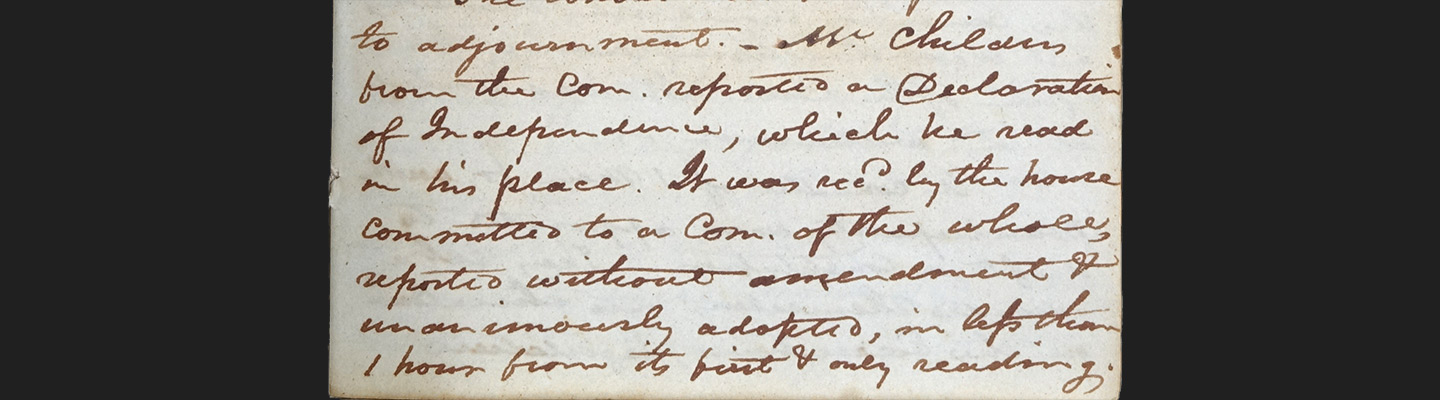 to adjournment. - Mr Childers
from the Com. reported a Declaration
of Independence, which he read
in his place. It was recd. by the house
committed to a Com. of the whole,
reported without amendment &
unanimously adopted, in less than
1 hour from its first & only reading.